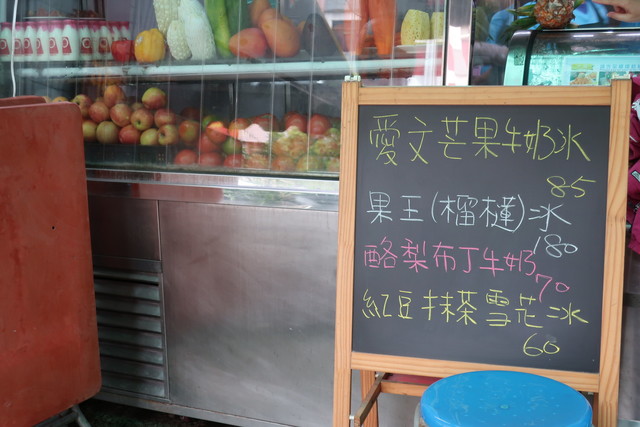 愛文芒果牛奶冰
85
果王(榴槤)冰
180
酪梨布丁牛奶
70
紅豆抹茶雪花冰
60